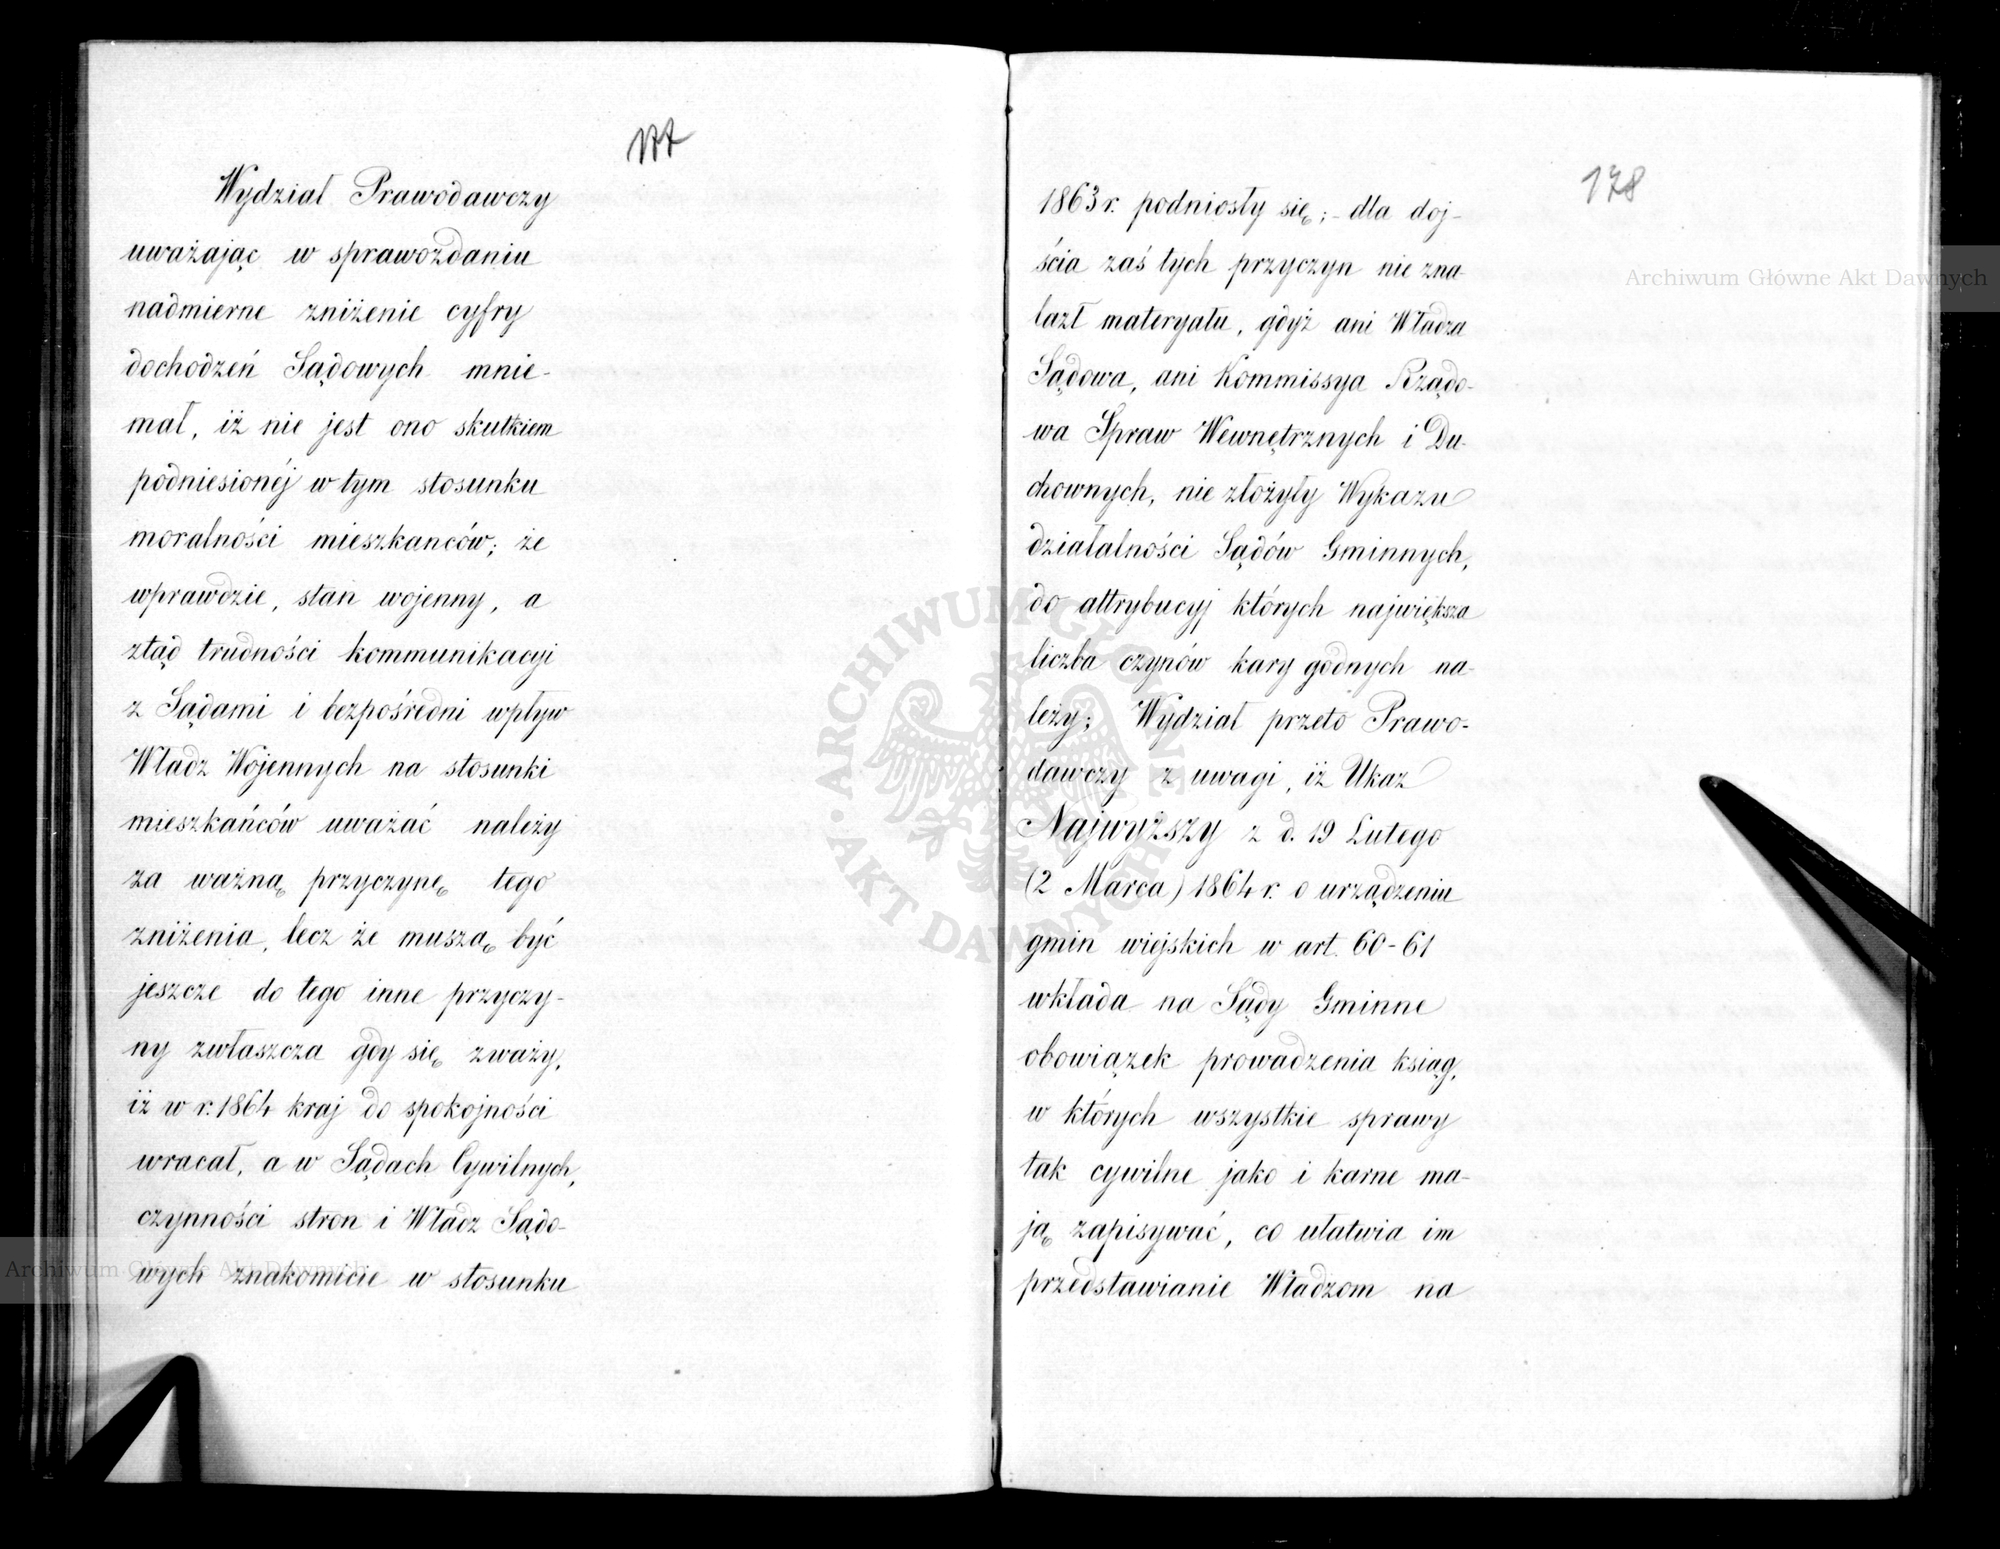 177
Wydział Prawodawczy
uważając w sprawozdaniu
nadmierne zniżenie cyfry
dochodzeń Sądowych mnie-
mał, iż nie jest ono skutkiem
podniesionéj w tym stosunku
moralności mieszkanców; że
wprawdzie, stan wojenny, a
ztąd trudności kommunikacyi
z Sądami i bezpośredni wpływ
Władz Wojennych na stosunki
mieszkańców uważać należy
za ważną przyczynę tego
zniżenia, lecz że muszą być
jeszcze do tego inne przyczy-
ny zwłaszcza gdy się zważy,
iż w r. 1864 kraj do spokojności
wracał, a w Sądach Cywilnych,
czynności stron i Władz Sądo-
wych znakomicie w stosunku
178
1863 r. podniosły się; - dla doj-
ścia zaś tych przyczyn nie zna-
lazł materyału, gdyż ani Władza
Sądowa, ani Kommissya Rządo-
wa Spraw Wewnętrznych i Du-
chownych, nie złożyły Wykazu
działalności Sądów Gminnych,
do attrybucyj których największa
liczba czynów kary godnych na-
leży; Wydział przeto Prawo-
dawczy z uwagi, iż Ukaz
Najwyższy z d. 19 Lutego
(2 Marca) 1864 r. o urządzeniu
gmin wiejskich w art. 60-61
wkłada na Sądy Gminne
obowiązek prowadzenia ksiąg,
w których wszystkie sprawy
tak cywilne jako i karne ma-
ją zapisywać, co ułatwia im
przedstawianie Władzom na
Archiwum Główne Akt Dawnych
Archiwum Główne Akt Dawnych
ARCHIWUM GŁÓWNE
AKT DAWNYCH